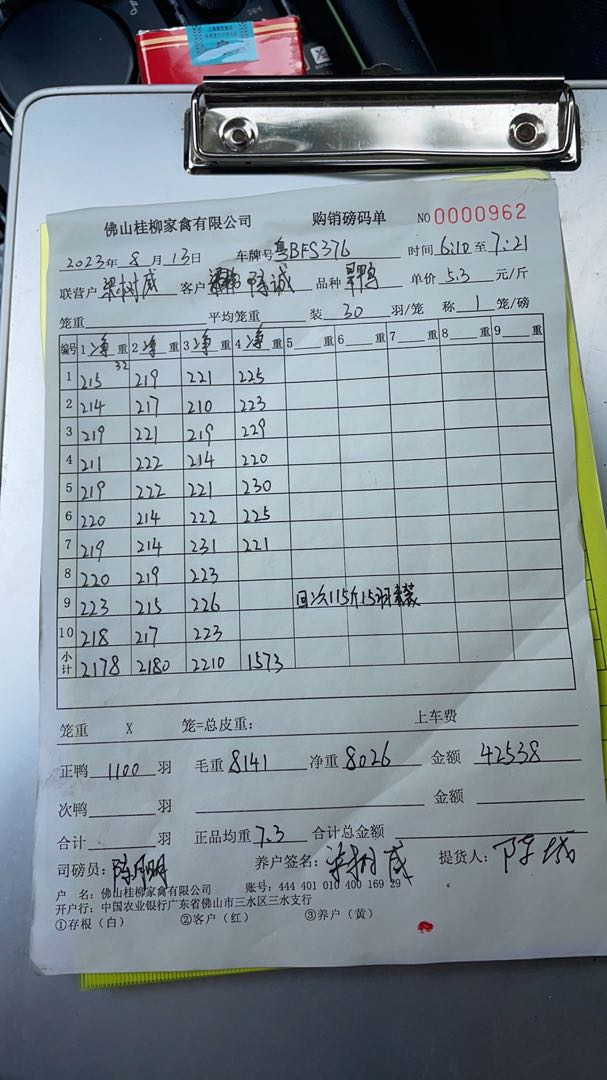 佛山桂柳家禽有限公司 购销磅码单 NO 0000962
2023年 8 月 13日 车牌号 粤BFS376 时间 6:10 至 7:21
联营户 梁树威 客户 诚 品种 鸭 单价 5.3 元/斤
笼重 平均笼重 装 30 羽/笼 称 1 笼/磅
编号 1 净 重 2 净 重 3 净 重 4 净 重 5 重 6 重 7 重 8 重 9 重
32
1 215 219 221 225
2 214 217 210 223
3 219 221 219 229
4 211 222 214 220
5 219 222 221 230
6 220 214 222 225
7 219 214 231 221
8 220 219 223
9 223 215 226 115斤15羽
10 218 217 223
小计 2178 2180 2210 1573
笼重 X 笼=总皮重: 上车费
正鸭 1100 羽 毛重 8141 净重 8026 金额 42538
次鸭 羽 金额
合计 羽 正品均重 7.3 合计总金额
司磅员: 陈 养户签名: 梁树威 提货人: 陈
户 名: 佛山桂柳家禽有限公司 账号: 444 401 010 400 169 29
开户行: 中国农业银行广东省佛山市三水区三水支行
①存根（白） ②客户（红） ③养户（黄）